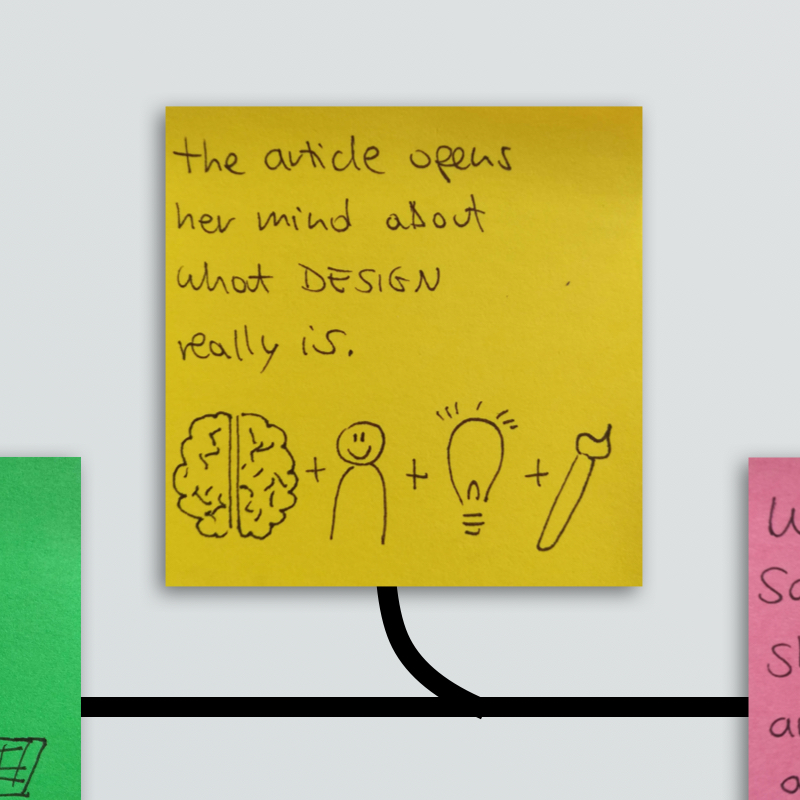 the article opens
her mind about
what DESIGN
really is.
+ + +